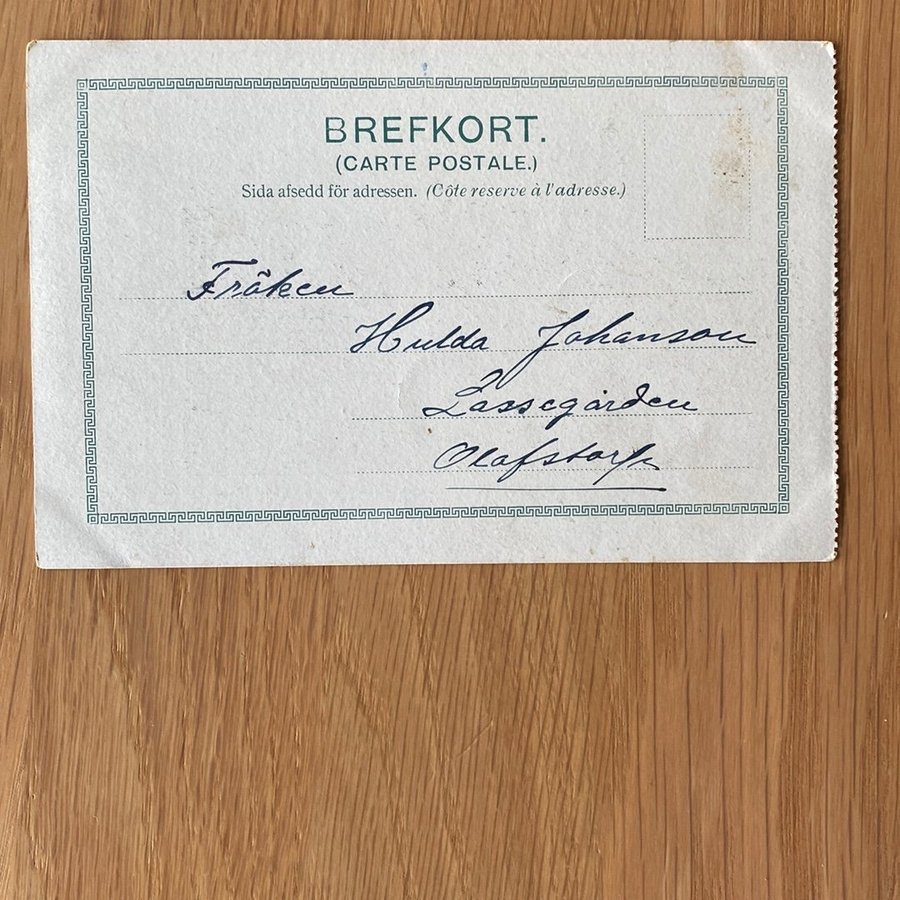 BREFKORT.
(CARTE POSTALE.)
Sida afsedd för adressen. (Côte reserve à l'adresse.)
Fröken
Hulda Johanson
Lassegården
Olofstorp